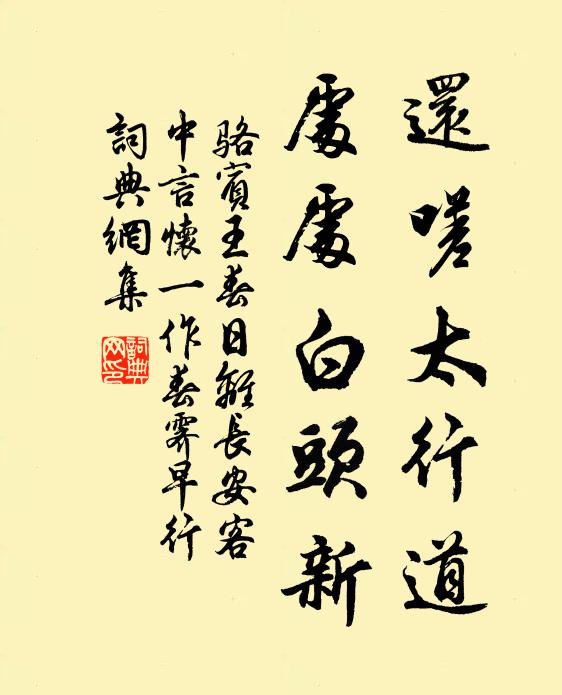 還嗟太行道
處處白頭新
駱賓王春日離長安客
中言懷一作春霽早行
詞典網集
詞典
网印